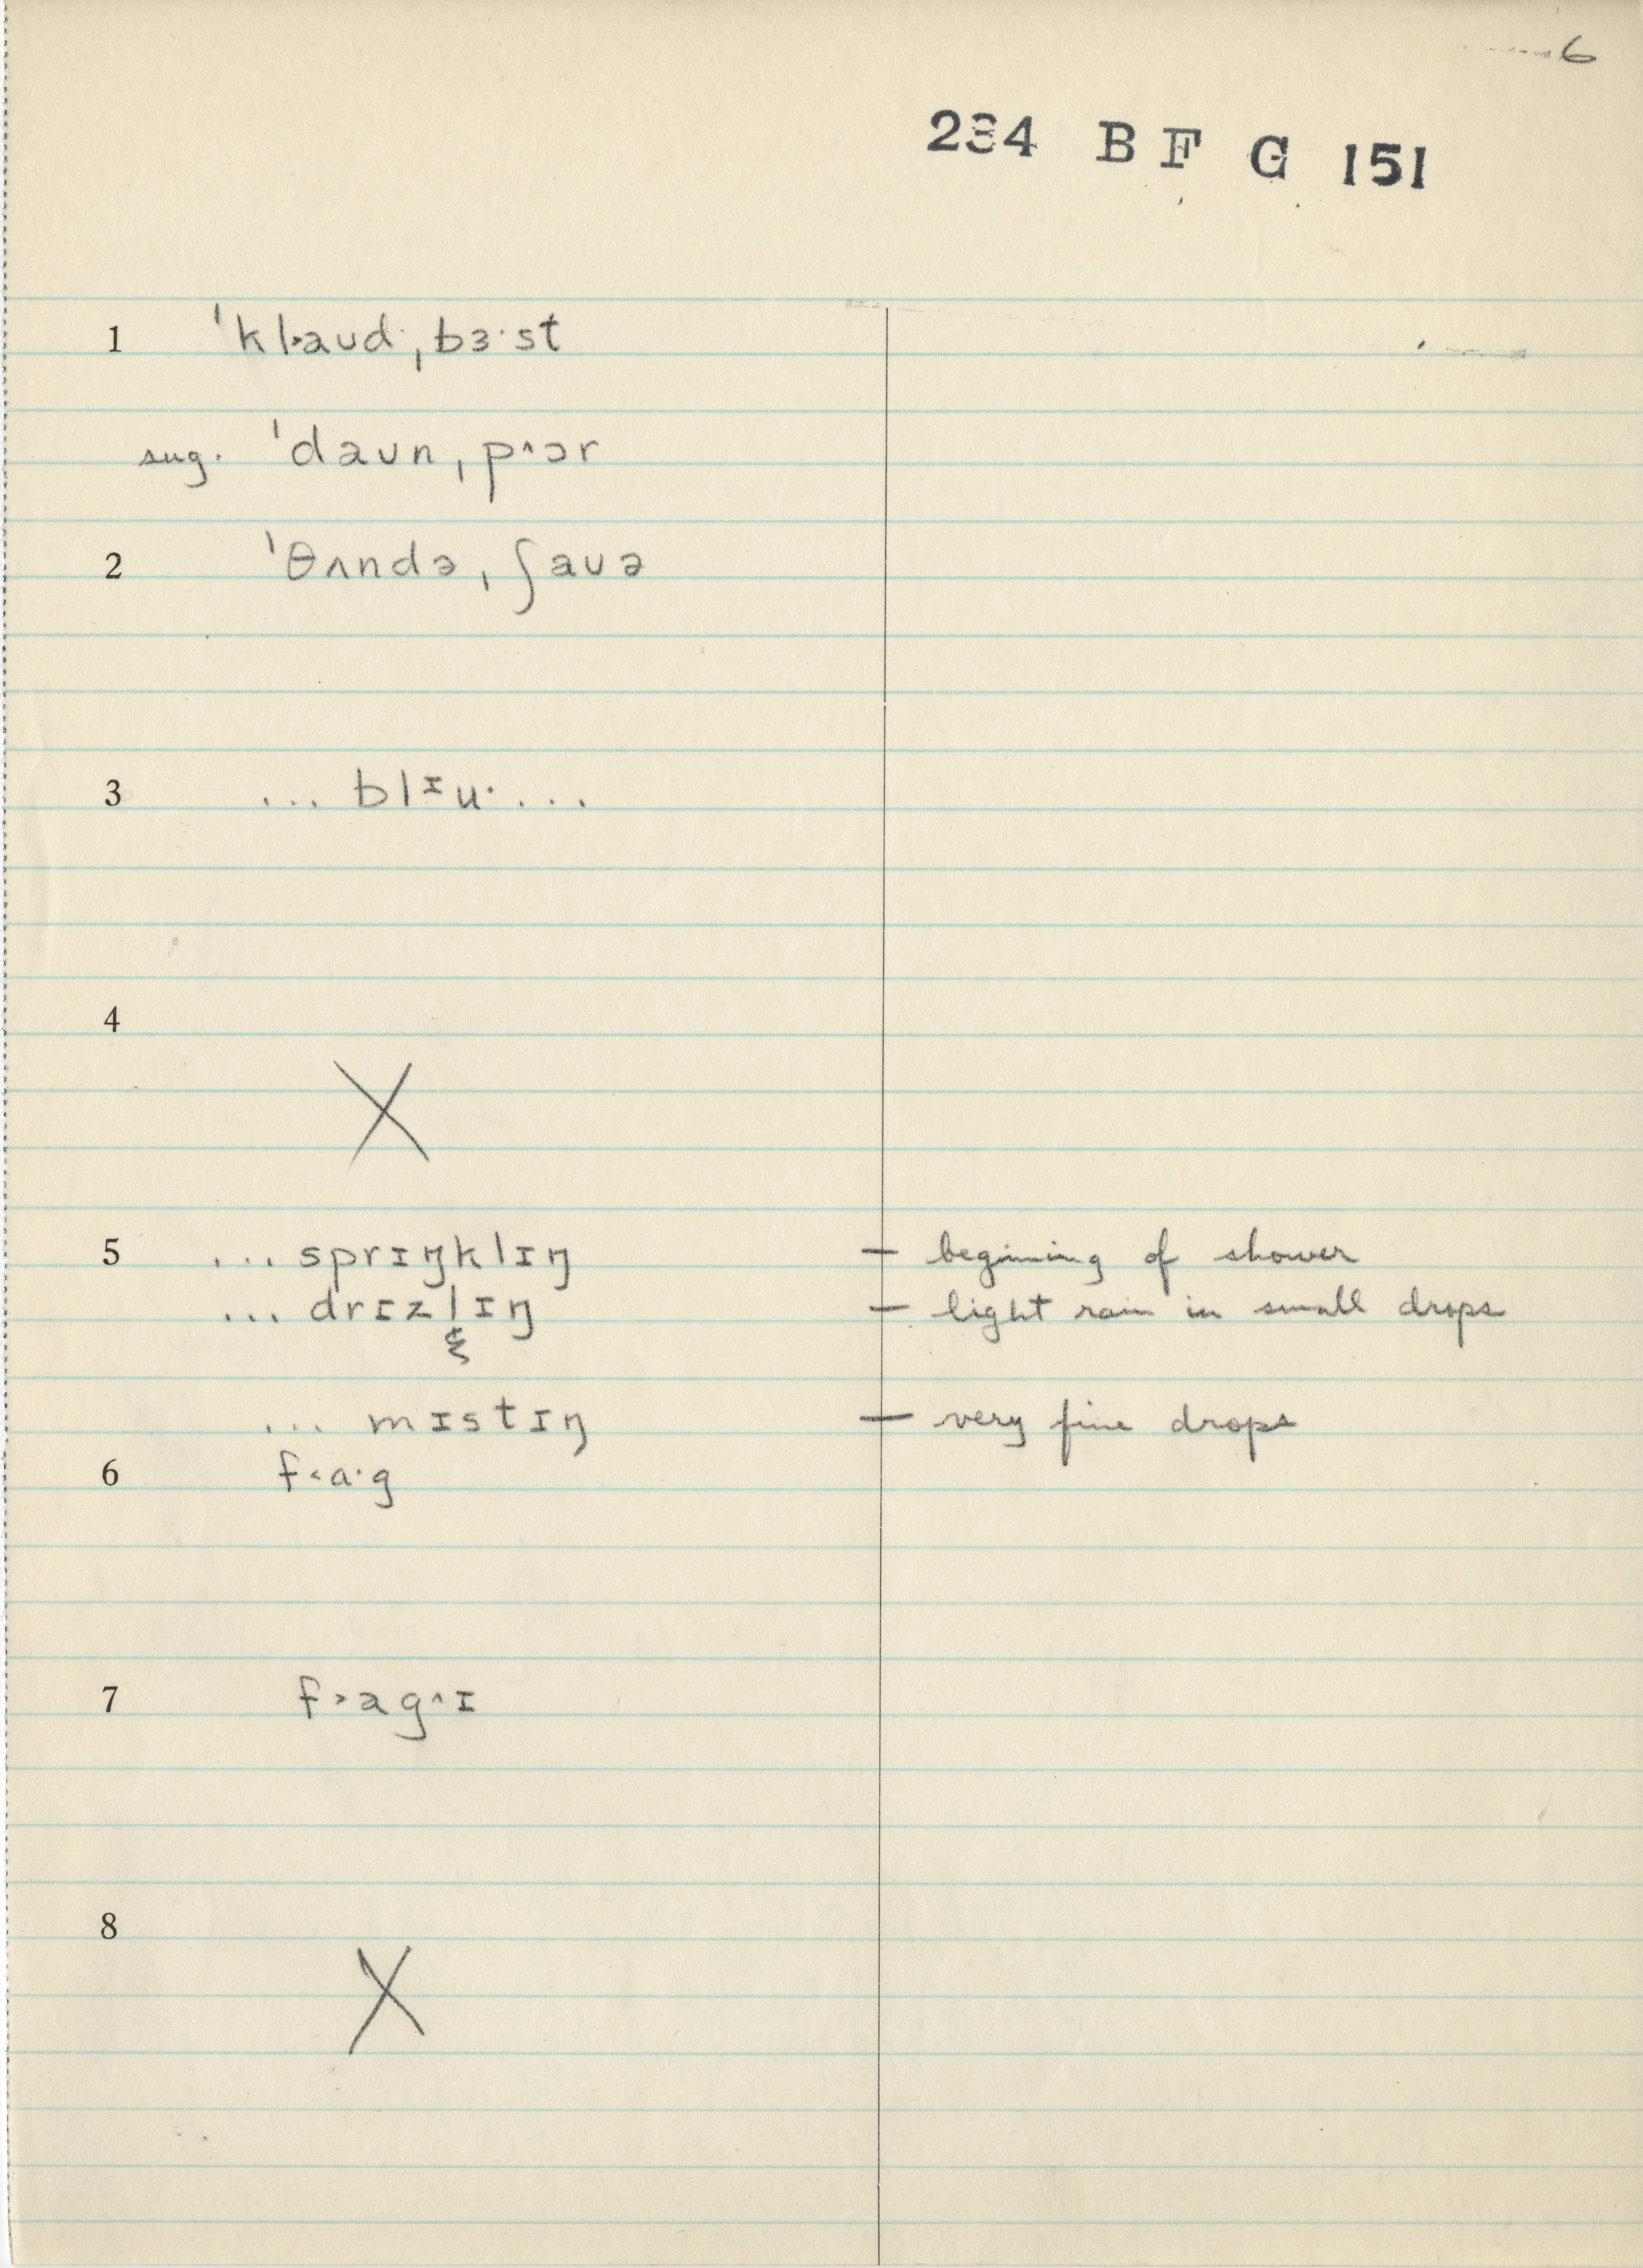 6
234 B F G 151
1 ˈkl˃aʊdˌbɜ·st
sug. ˈdaʊnˌp^ɔr
2 ˈθʌndəˌʃaʊə
3 ... blᶦu· ...
4 X
5 ... sprɪŋklɪŋ — begining of shower
... drɪzlɪŋ — light rain in small drops
&
... mɪstɪŋ — very fine drops
6 f˂ɑ·g
7 f˃ag^ɪ
8 X